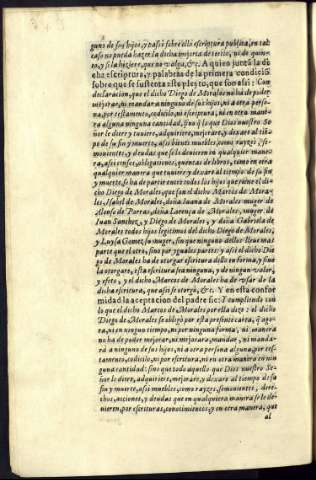 guno de sus hijos, y passi sobre ello escriptura publica, en tal
caso no pueda hazer la dicha mejora de tercio, ni de quinto,
y si la hiziere, que no valga, &c. A quien junta la di
cha escriptura, y palabras de la primera condicion
sobre que se sustenta este pleyto, que son assi: Con
declaracion, que el dicho Diego de Morales no ha de poder
mejorar, ni mandar a ninguno de sus hijos, ni a otra perso
na, por testamento, codicilo, ni escriptura, ni en otra mane
ra alguna ninguna cantidad, sino q̃ lo que Dios nuestro Se
ñor le diere y tuuiere, adquiriere, mejorare, y dexare al tiẽ
po de su fin y muerte, assi bienes muebles, como rayzes, se
mouientes, y deudas que se le deuieren en qualquier mane
ra, assi censos, obligaciones, quentas de libros, como en otra
qualquier manera que tuuiere y dexare al tiempo de su fin
y muerte, se ha de partir entre todos los hijos q̃ tiene el di-
cho Diego de Morales, que son el dicho Marcos de Mora-
les, Isabel de Morales, doña Juana de Morales muger de
Alonso de Porras, doña Lorença de Morales, muger de
Juan Sanchez, y Diego de Morales, y doña Gabriela de
Morales todos hijos legitimos del dicho Diego de Morales,
y Luysa Gomez su muger, sin que ninguno dellos lleue mas
parte que el otro, sino por yguales partes: y assi el dicho Die
go de Morales ha de otorgar escriptura dello en forma, y sino
la otorgare, esta escritura sea ninguna, y de ningun valor,
y efeto, y el dicho Marcos de Morales ha de vsar de la
dicha escritura, que assi se otorgò, &c. Y en esta confor
midad la aceptacion del padre fue: I cumpliendo con
lo que el dicho Marcos de Morales por ella dize: el dicho
Diego de Morales se obligò por esta presente carta, q̃ agora,
ni en ningun tiempo, ni por ninguna forma, ni manera
no ha de poder mejorar, ni mejorara, mandar, ni manda-
rà a ninguno de sus hijos, ni a otra persona alguna, por testamento,
codicilo, ni por escritura, ni en otra manera ninguna
cantidad: sino que todo aquello que Dios nuestro Se-
ñor le diere, adquiriere, mejorare, y dexare al tiempo de su
fin y muerte, assi muebles, como rayzes, semouientes, dere-
chos, acciones, y deudas que en qualquier manera se le de-
uieren, por escrituras, conocimientos, y en otra manera, que
al